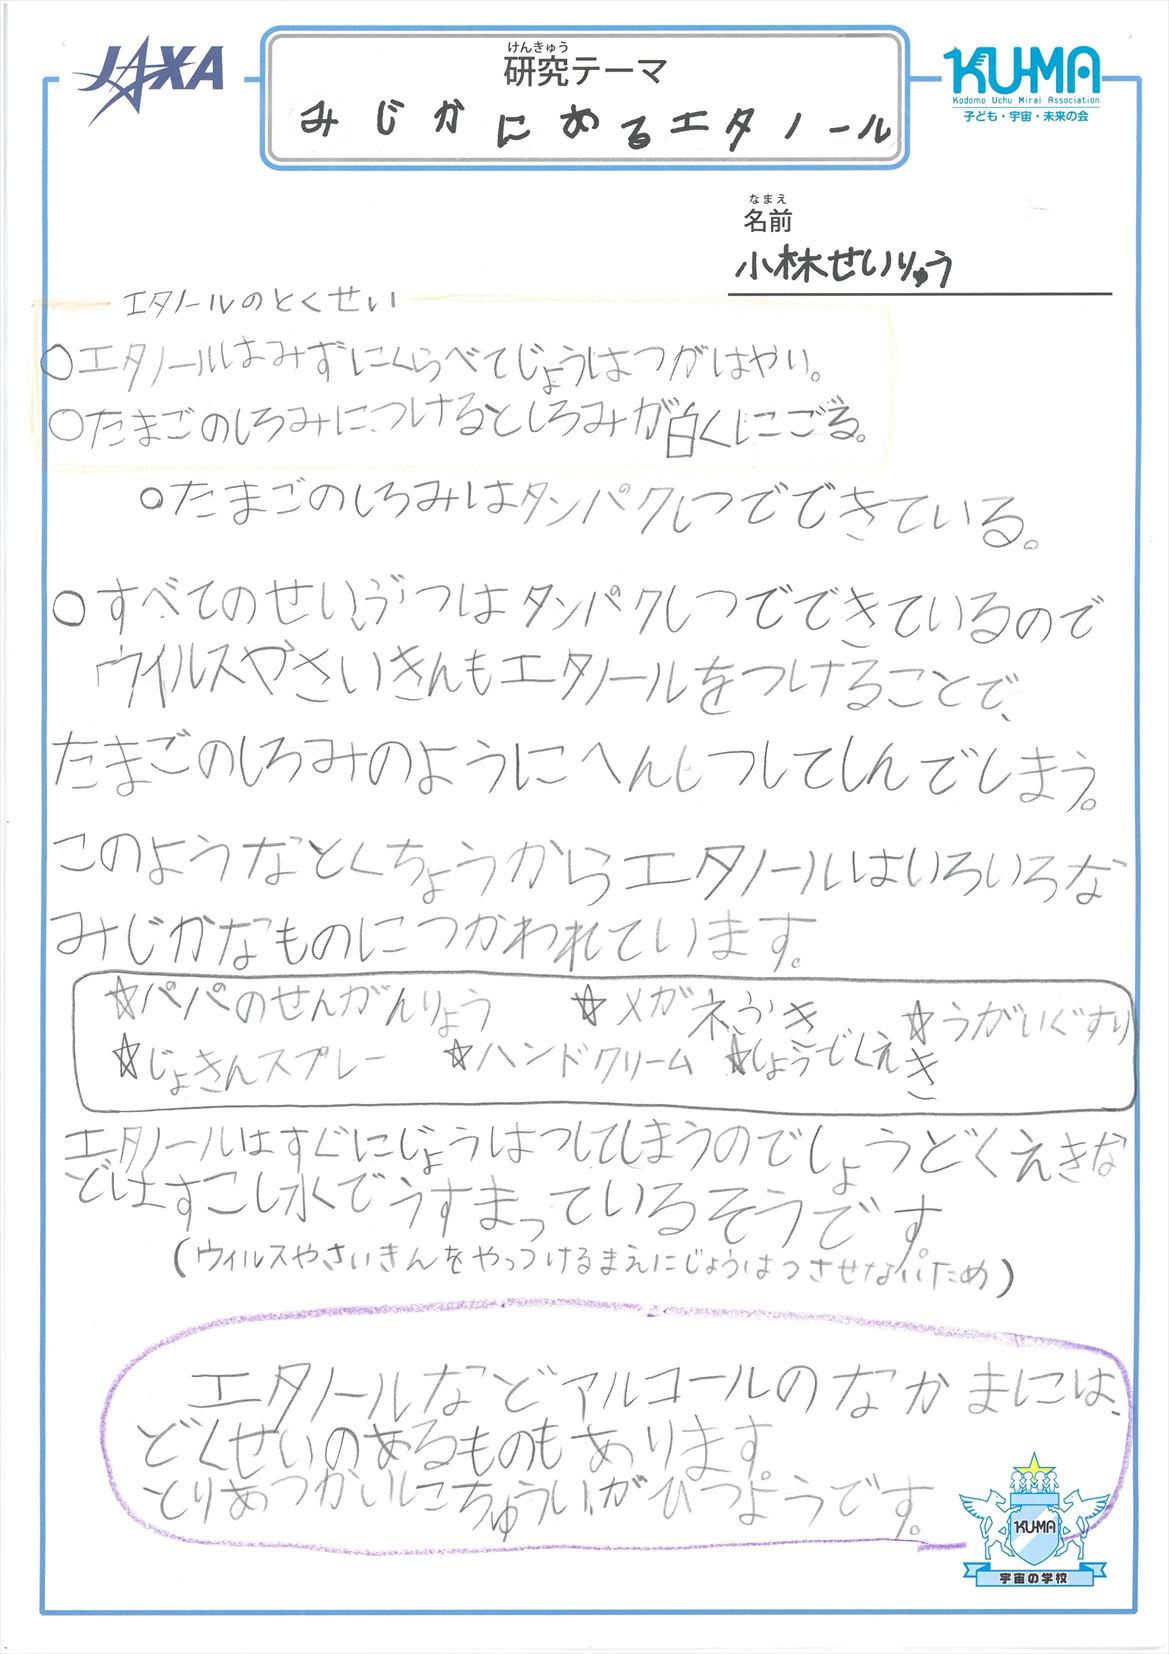 JAXA
けんきゅう
研究テーマ
みじかにあるエタノール
KU-MA
Kodomo Uchu Mirai Association
子ども・宇宙・未来の会
なまえ
名前
小林せいりゅう
エタノールのとくせい
○エタノールはみずにくらべてじょうはつがはやい。
○たまごのしろみにつけるとしろみが白くにごる。
○たまごのしろみはタンパクしつでできている。
○すべてのせいぶつはタンパクしつでできているので
ウイルスやさいきんもエタノールをつけることで、
たまごのしろみのようにへんしつしてしんでしまう。
このようなとくちょうからエタノールはいろいろな
みじかなものにつかわれています。
☆パパのせんがんりょう ☆メガネふき ☆うがいぐすり
☆じょきんスプレー ☆ハンドクリーム ☆しょうどくえき
エタノールはすぐにじょうはつしてしまうのでしょうどくえきな
どはすこし水でうすまっているそうです。
(ウィルスやさいきんをやっつけるまえにじょうはつさせないため)
エタノールなどアルコールのなかまには、
どくせいのあるものもあります。
とりあつかいにちゅういがひつようです。
KU-MA
宇宙の学校